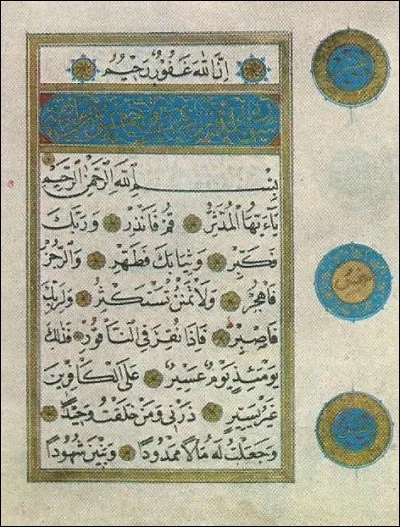 إِنَّ اللَّهَ غَفُورٌ رَحِيمٌ
بِسْمِ اللَّهِ الرَّحْمَٰنِ الرَّحِيمِ
يَا أَيُّهَا الْمُدَّثِّرُ قُمْ فَأَنْذِرْ وَرَبَّكَ
فَكَبِّرْ وَثِيَابَكَ فَطَهِّرْ وَالرُّجْزَ
فَاهْجُرْ وَلَا تَمْنُنْ تَسْتَكْثِرُ وَلِرَبِّكَ
فَاصْبِرْ فَإِذَا نُقِرَ فِي النَّاقُورِ فَذَٰلِكَ
يَوْمَئِذٍ يَوْمٌ عَسِيرٌ عَلَى الْكَافِرِينَ
غَيْرُ يَسِيرٍ ذَرْنِي وَمَنْ خَلَقْتُ وَحِيدًا
وَجَعَلْتُ لَهُ مَالًا مَمْدُودًا وَبَنِينَ شُهُودًا